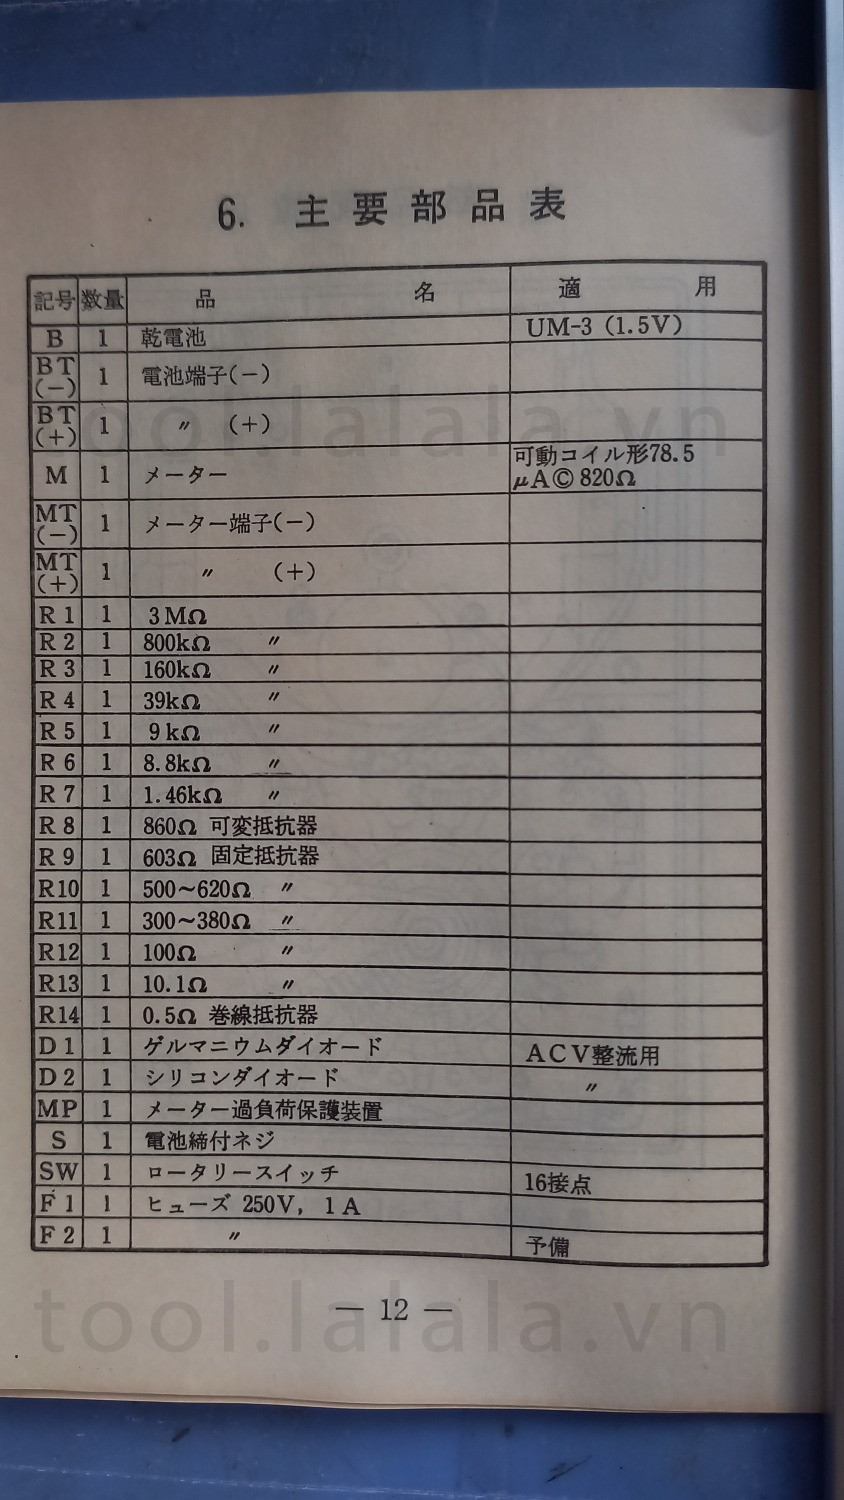 6. 主要部品表
記号 数量 品名 適用
B 1 乾電池 UM-3 (1.5V)
BT(−) 1 電池端子(−)
BT(+) 1 〃 (+)
M 1 メーター 可動コイル形78.5
μAⒸ820Ω
MT(−) 1 メーター端子(−)
MT(+) 1 〃 (+)
R1 1 3MΩ
R2 1 800kΩ 〃
R3 1 160kΩ 〃
R4 1 39kΩ 〃
R5 1 9kΩ 〃
R6 1 8.8kΩ 〃
R7 1 1.46kΩ 〃
R8 1 860Ω 可変抵抗器
R9 1 603Ω 固定抵抗器
R10 1 500~620Ω 〃
R11 1 300~380Ω 〃
R12 1 100Ω 〃
R13 1 10.1Ω 〃
R14 1 0.5Ω 巻線抵抗器
D1 1 ゲルマニウムダイオード ACV整流用
D2 1 シリコンダイオード 〃
MP 1 メーター過負荷保護装置
S 1 電池締付ネジ
SW 1 ロータリースイッチ 16接点
F1 1 ヒューズ 250V, 1A
F2 1 〃 予備
— 12 —
tool.lalala.vn
tool.lalala.vn